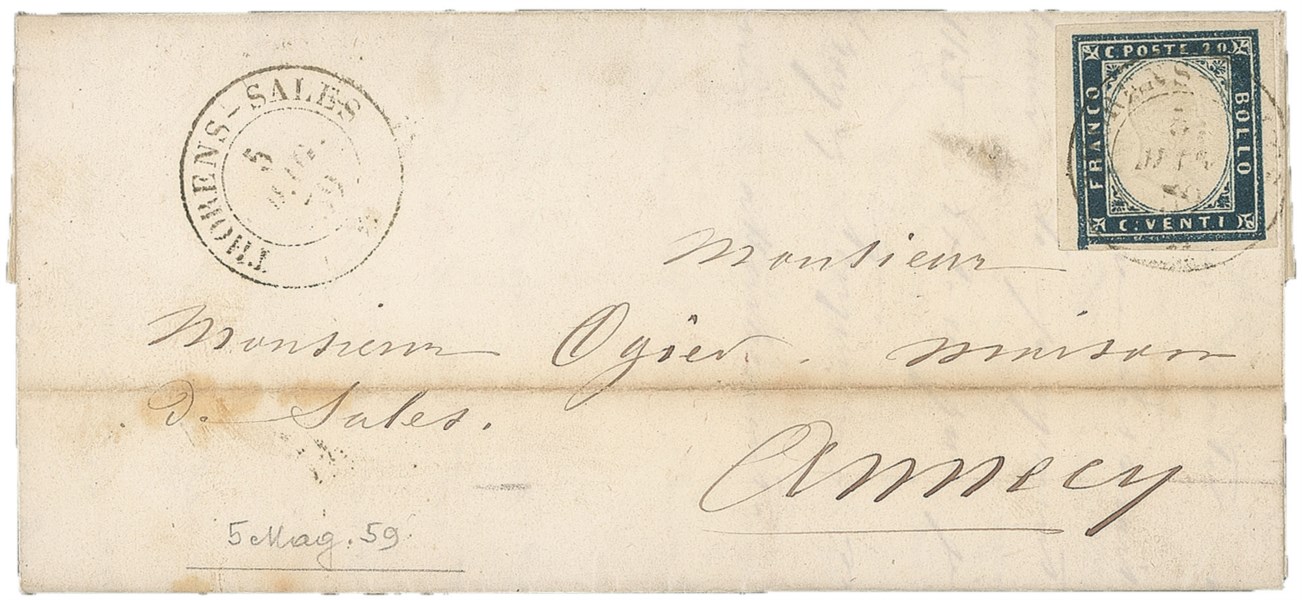 THORENS-SALES
5
C. POSTE. 20
FRANCO
BOLLO
C. VENTI
Monsieur
Monsieur Ogier. maison
De Sales.
Annecy
5 Mag. 59